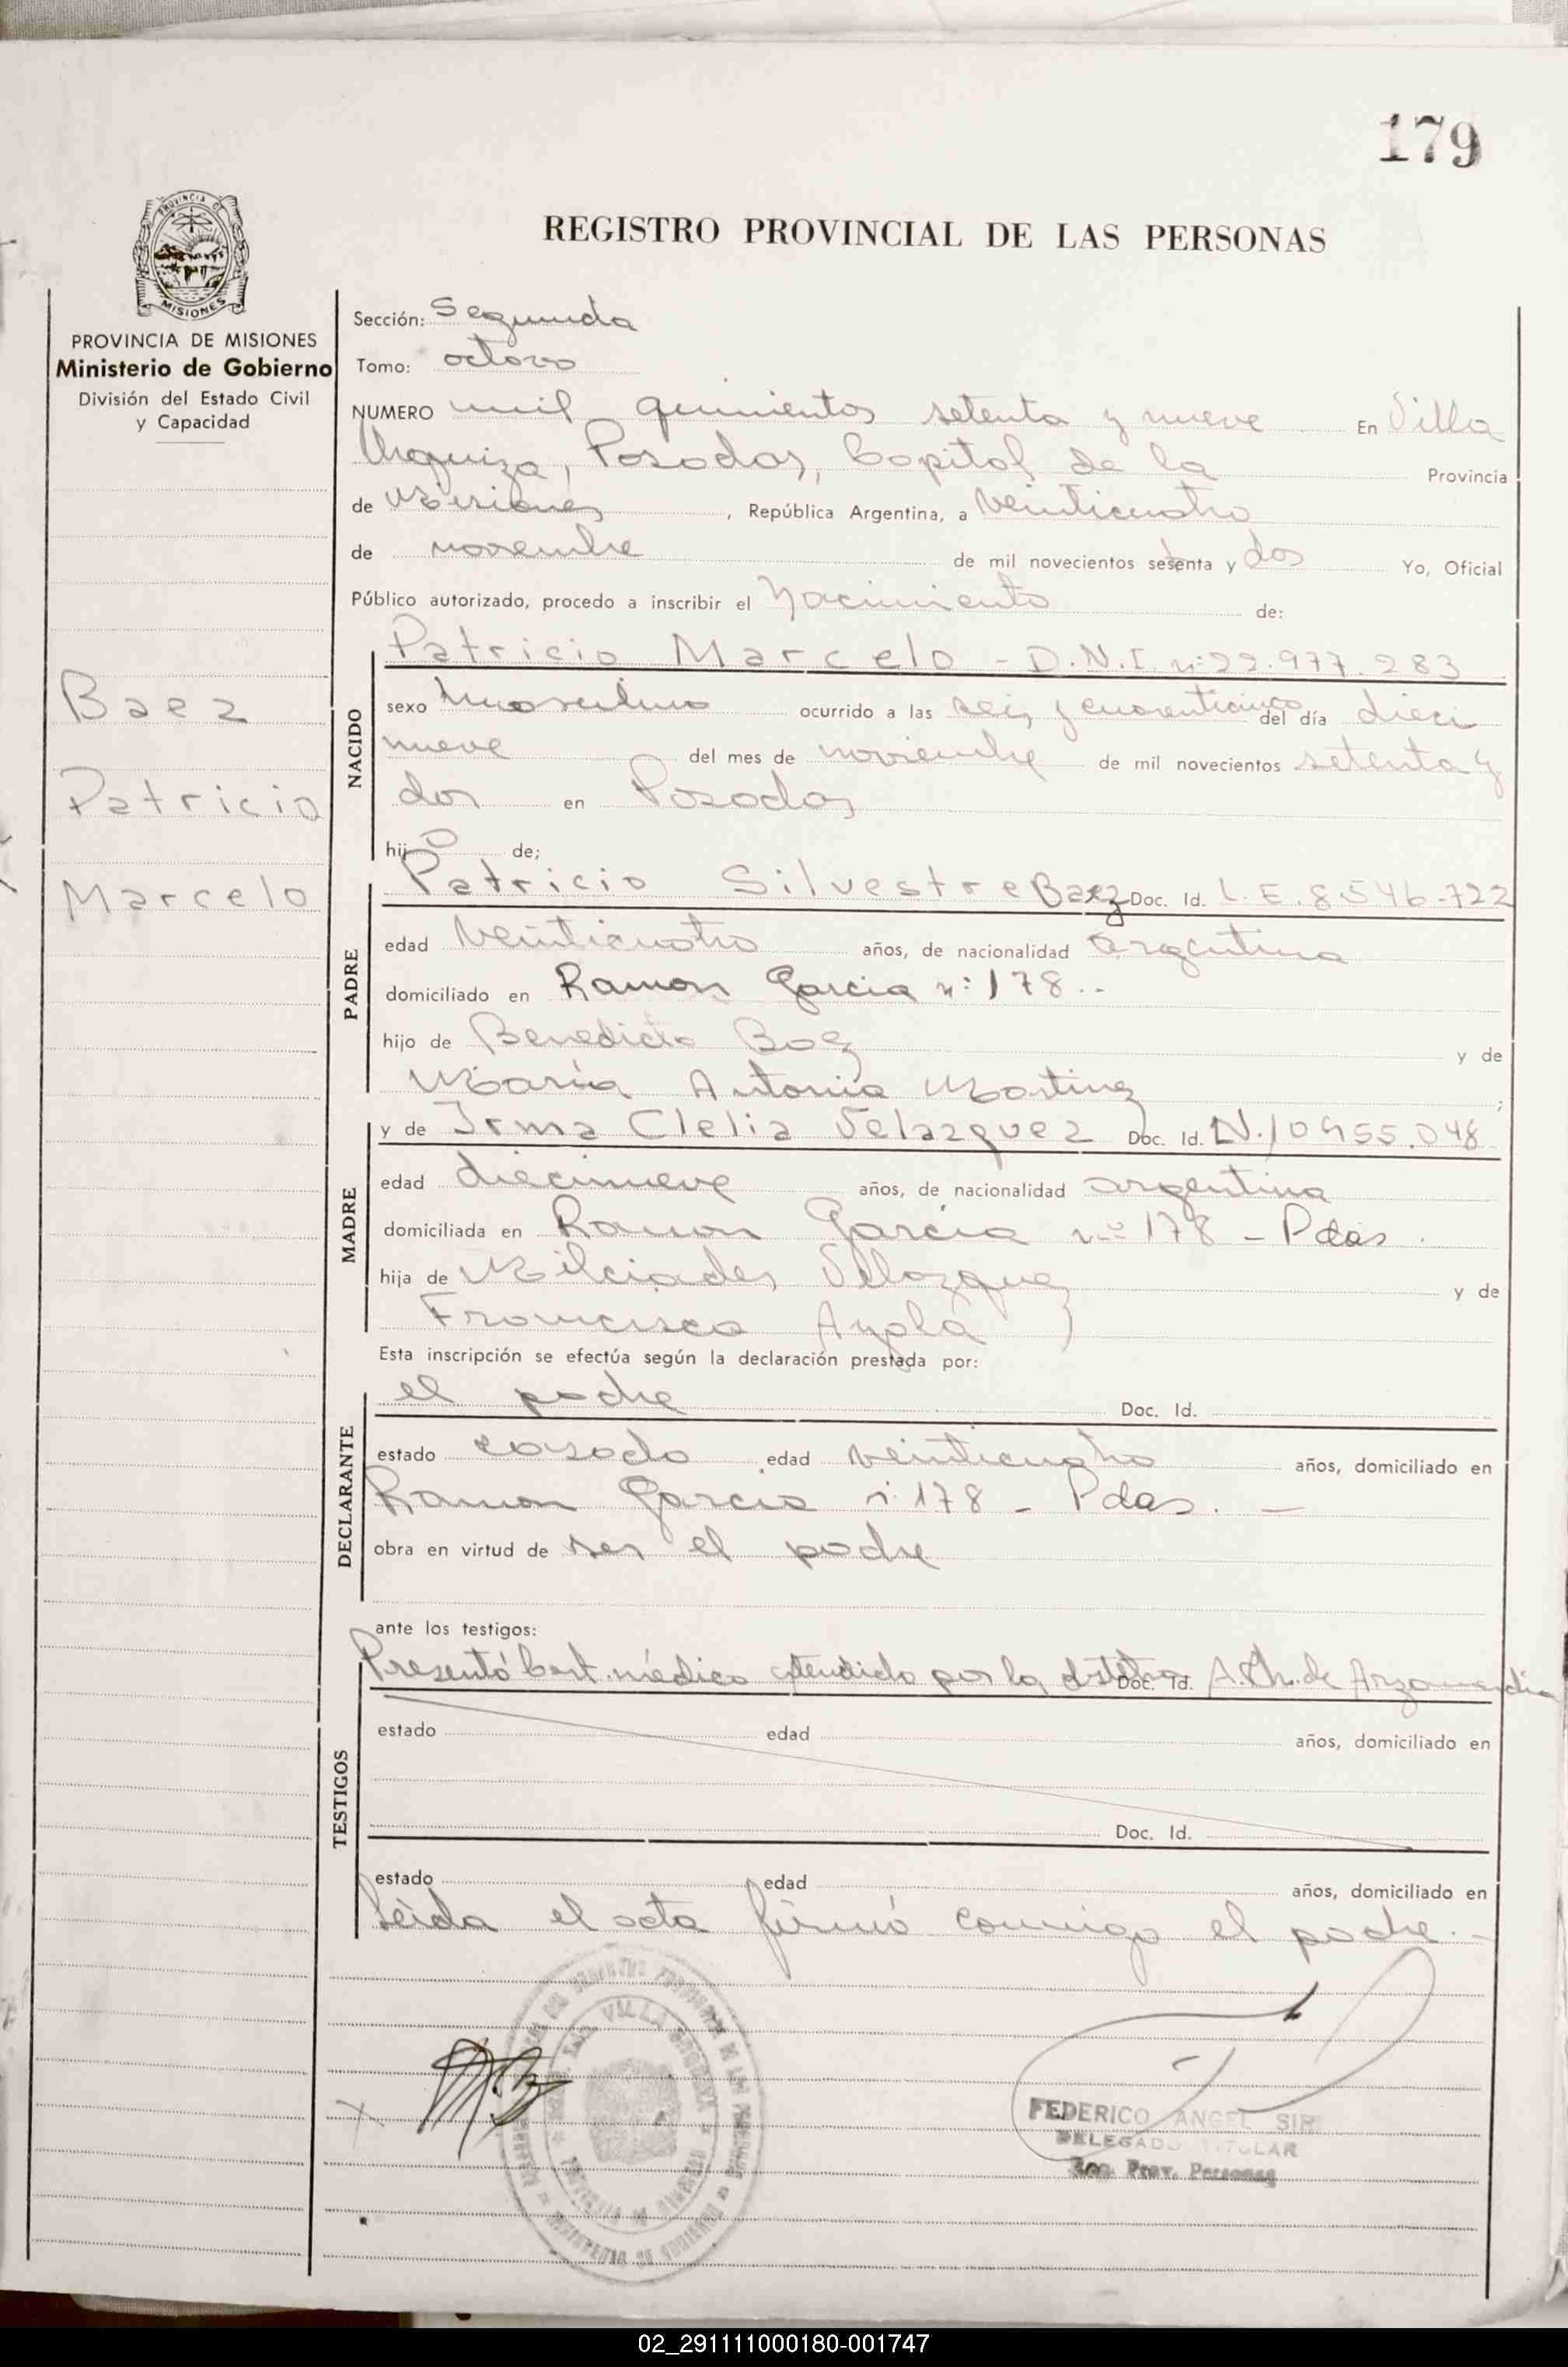 179
PROVINCIA DE MISIONES
REGISTRO PROVINCIAL DE LAS PERSONAS
PROVINCIA DE MISIONES
Ministerio de Gobierno
División del Estado Civil
y Capacidad
Baez
Patricio
Marcelo
Sección: Segunda
Tomo: octavo
NUMERO mil quinientos setenta y nueve En Villa
Urquiza, Posadas, Capital de la Provincia
de Misiones, República Argentina, a veinticuatro
de noviembre de mil novecientos setenta y dos Yo, Oficial
Público autorizado, procedo a inscribir el Nacimiento de:
NACIDO
Patricio Marcelo - D.N.I. nº 22.977.283
sexo Masculino ocurrido a las seis y cuarenticinco del día dieci
nueve del mes de noviembre de mil novecientos setenta y
dos en Posadas
hijo de;
PADRE
Patricio Silvestre Baez Doc. Id. L.E. 8.546.722
edad veinticuatro años, de nacionalidad argentina
domiciliado en Ramon Garcia nº 178..
hijo de Benedicto Baez y de
María Antonia Martinez;
MADRE
y de Irma Clelia Velazquez Doc. Id. N. 10455.048
edad diecinueve años, de nacionalidad argentina
domiciliada en Ramon Garcia nº 178 - Pdas.
hija de Milciades Velazquez y de
Francisca Ayala
Esta inscripción se efectúa según la declaración prestada por:
DECLARANTE
el padre Doc. Id.
estado casado edad veinticuatro años, domiciliado en
Ramon Garcia nº 178 - Pdas. -
obra en virtud de ser el padre
ante los testigos:
TESTIGOS
Presentó Cert. médico atendido por la Doc. Id. A. Ch. de Arzamendia
estado edad años, domiciliado en
Doc. Id.
estado edad años, domiciliado en
Leida el acta firmó conmigo el padre. -
VILLA URQUIZA
FEDERICO ANGEL SIR
DELEGADO TITULAR
Reg. Prov. Personas
02_291111000180-001747